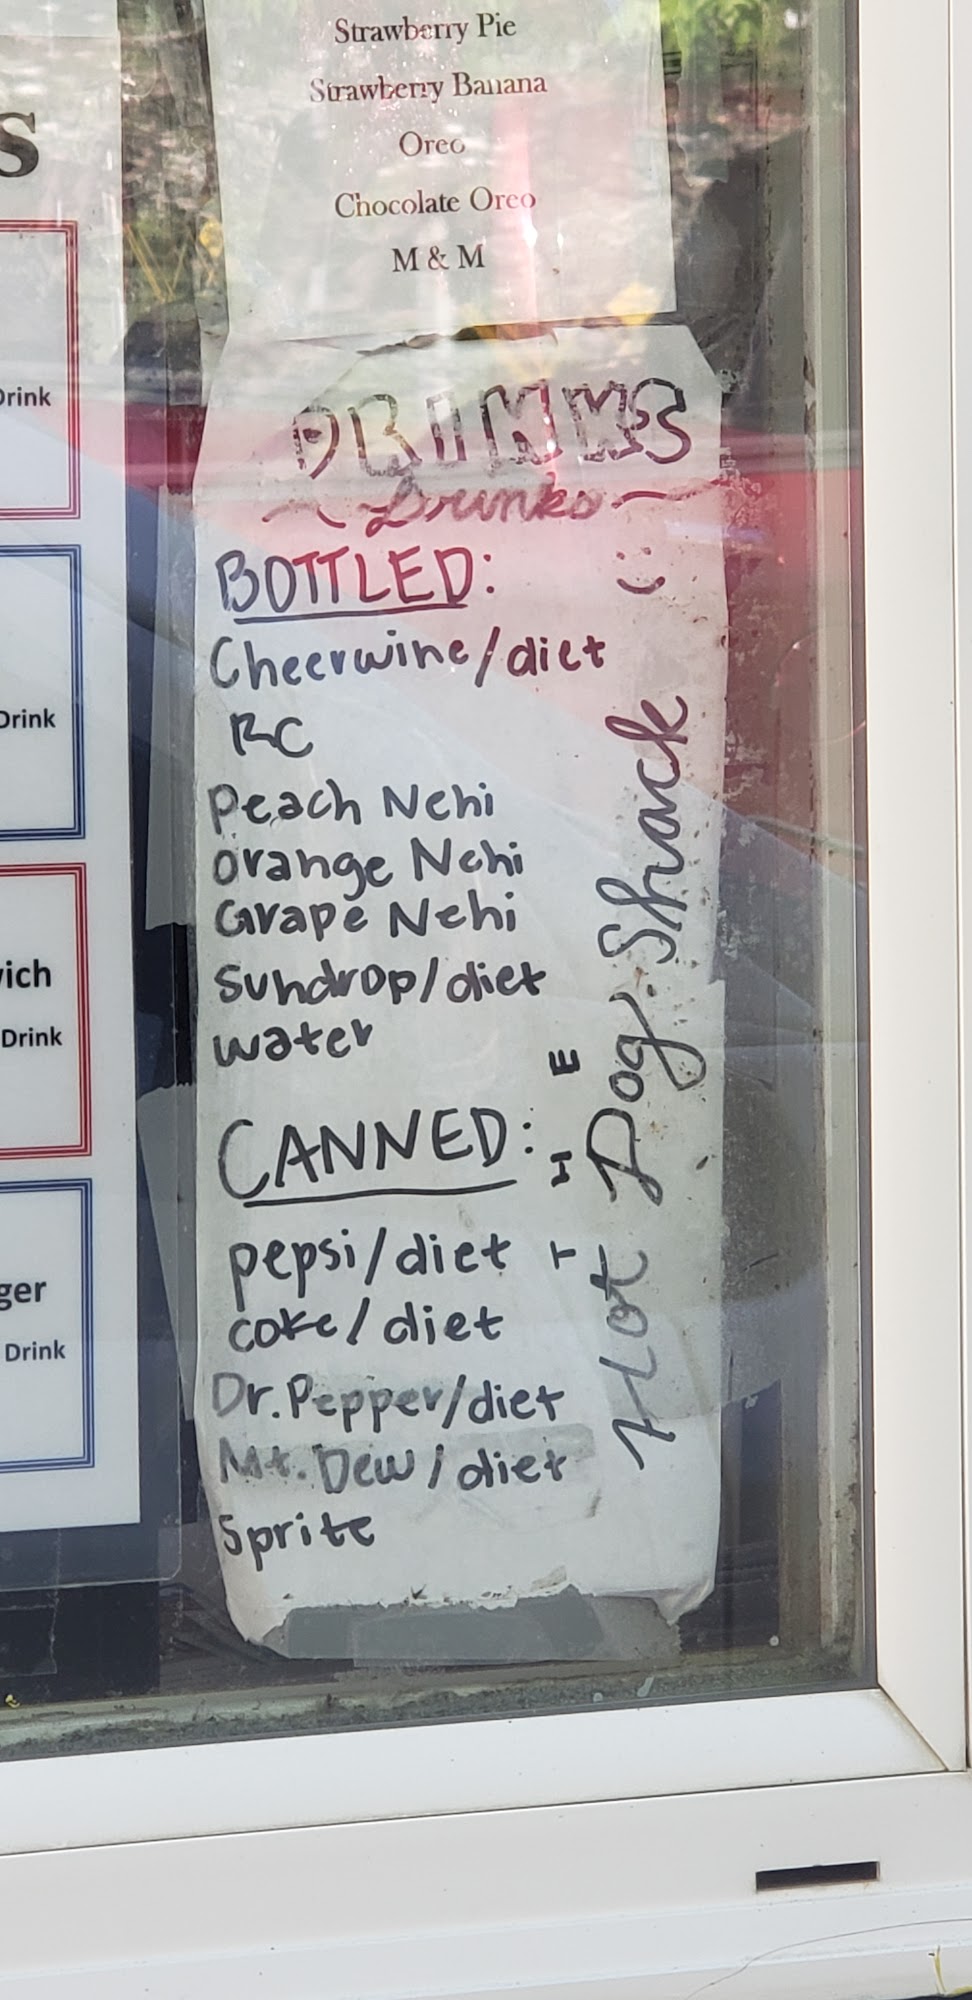 Strawberry Pie
Strawberry Banana
Oreo
Chocolate Oreo
M & M
S
Drink
Drink
wich
Drink
ger
Drink
DRINKS
~Drinks~
BOTTLED:
Cheerwine/diet
RC
Peach Nehi
Orange Nehi
Grape Nehi
Sundrop/diet
water
CANNED:
pepsi/diet
coke/diet
Dr. Pepper/diet
Mt. Dew/diet
Sprite
THE
Hot Dog Shack :)